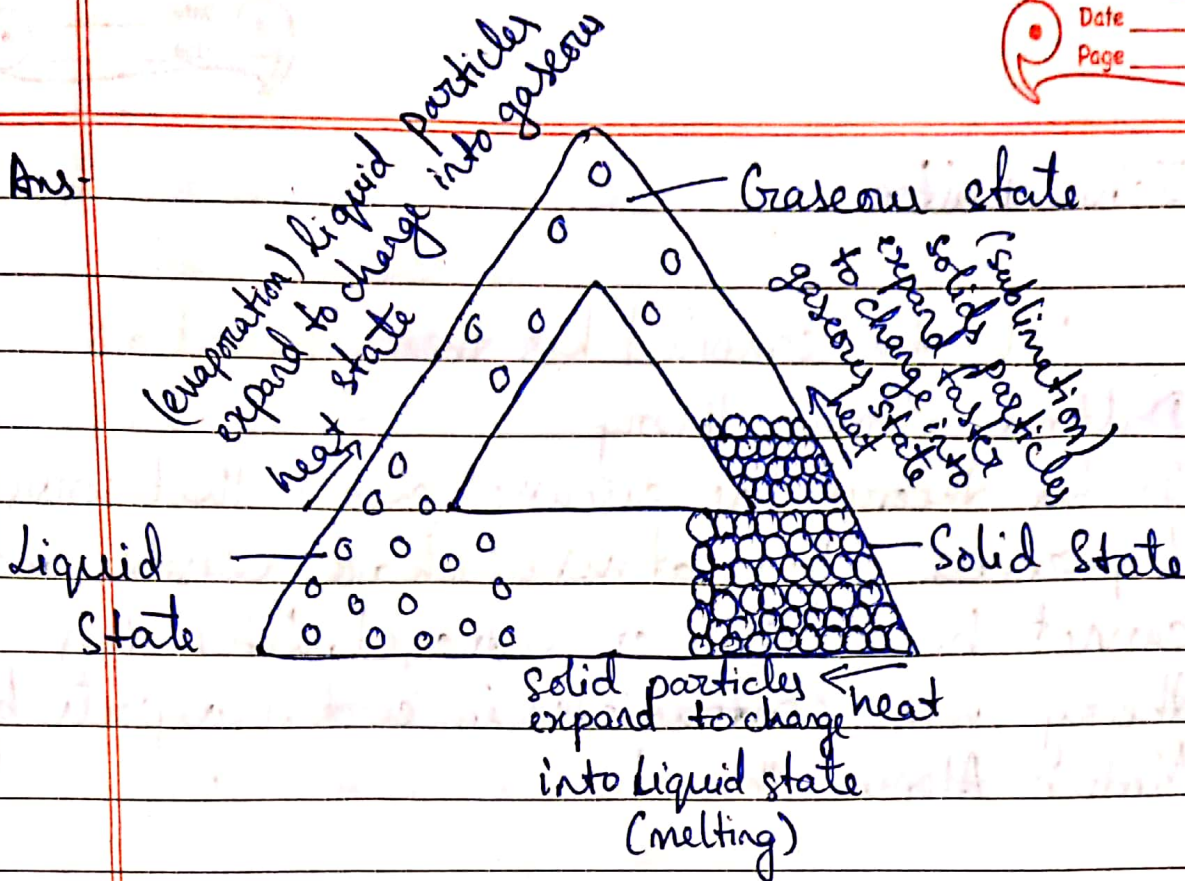 Date
Page
Ans-
(evaporation) liquid particles
expand to change into gaseous
state
heat
Gaseous state
(sublimation)
solids particles
expand faster
to change into
gaseous state
heat
Liquid
State
Solid State
solid particles
heat
expand to change
into liquid state
(melting)